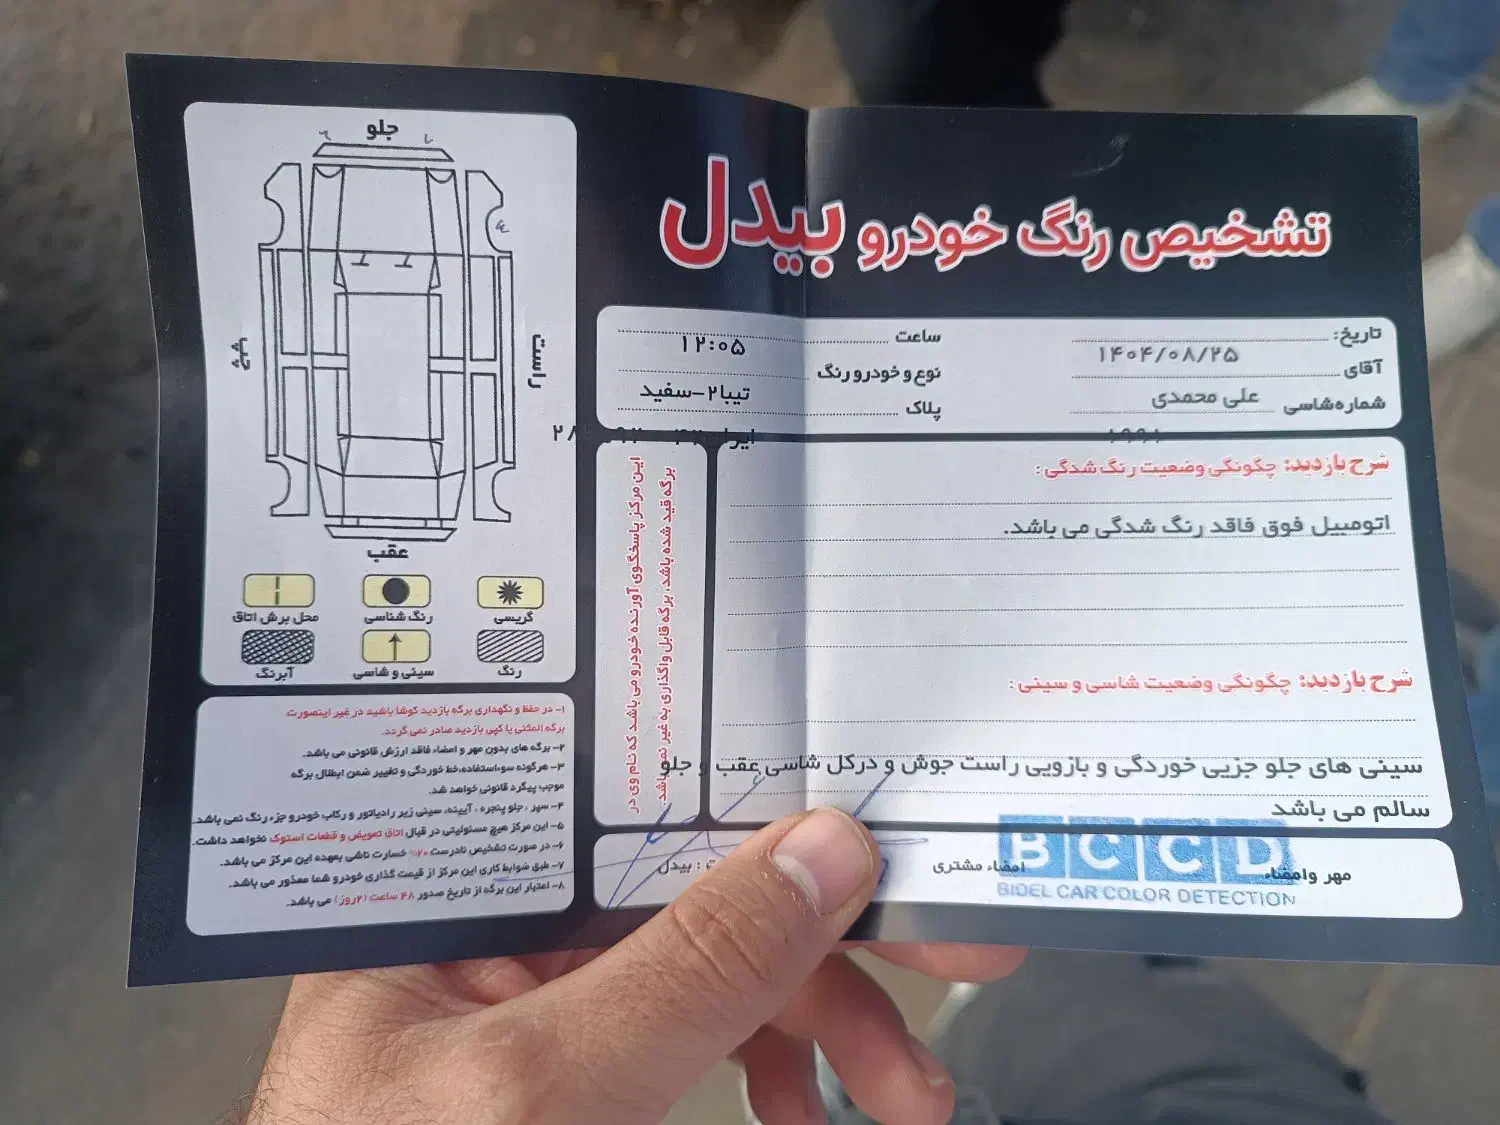 تشخیص رنگ خودرو بیدل
تاریخ: ۱۴۰۴/۰۸/۲۵
ساعت ۱۲:۰۵
آقای علی محمدی
نوع و خودرو رنگ تیبا۲-سفید
شماره شاسی
پلاک
شرح بازدید: چگونگی وضعیت رنگ شدگی:
اتومبیل فوق فاقد رنگ شدگی می باشد.
شرح بازدید: چگونگی وضعیت شاسی و سینی:
سینی های جلو جزیی خوردگی و بازویی راست جوش و درکل شاسی عقب و جلو
سالم می باشد
مهر وامضاء
امضاء مشتری
بیدل
BCCD
BIDEL CAR COLOR DETECTION
این مرکز پاسخگوی آورنده خودرو می باشد که نام وی در
برگه قید شده باشد، برگه قابل واگذاری به غیر نمی‌باشد.
جلو
راست
چپ
عقب
گریسی
رنگ شناسی
محل برش اتاق
رنگ
سینی و شاسی
آبرنگ
۱- در حفظ و نگهداری برگه بازدید کوشا باشید در غیر اینصورت
برگه المثنی یا کپی بازدید صادر نمی گردد.
۲- برگه های بدون مهر و امضاء فاقد ارزش قانونی می باشد.
۳- هرگونه سوءاستفاده، خط خوردگی و تغییر ضمن ابطال برگه
موجب پیگرد قانونی خواهد شد.
۴- سپر، جلو پنجره، آیینه، سینی زیر رادیاتور و رکاب خودرو جزء رنگ نمی باشد.
۵- این مرکز هیچ مسئولیتی در قبال اتاق تعویض و قطعات استوک نخواهد داشت.
۶- در صورت تشخیص نادرست ۲۰% خسارت ناشی بعهده این مرکز می باشد.
۷- طبق ضوابط کاری این مرکز از قیمت گذاری خودرو شما معذور می باشد.
۸- اعتبار این برگه از تاریخ صدور ۴۸ ساعت (۲روز) می باشد.